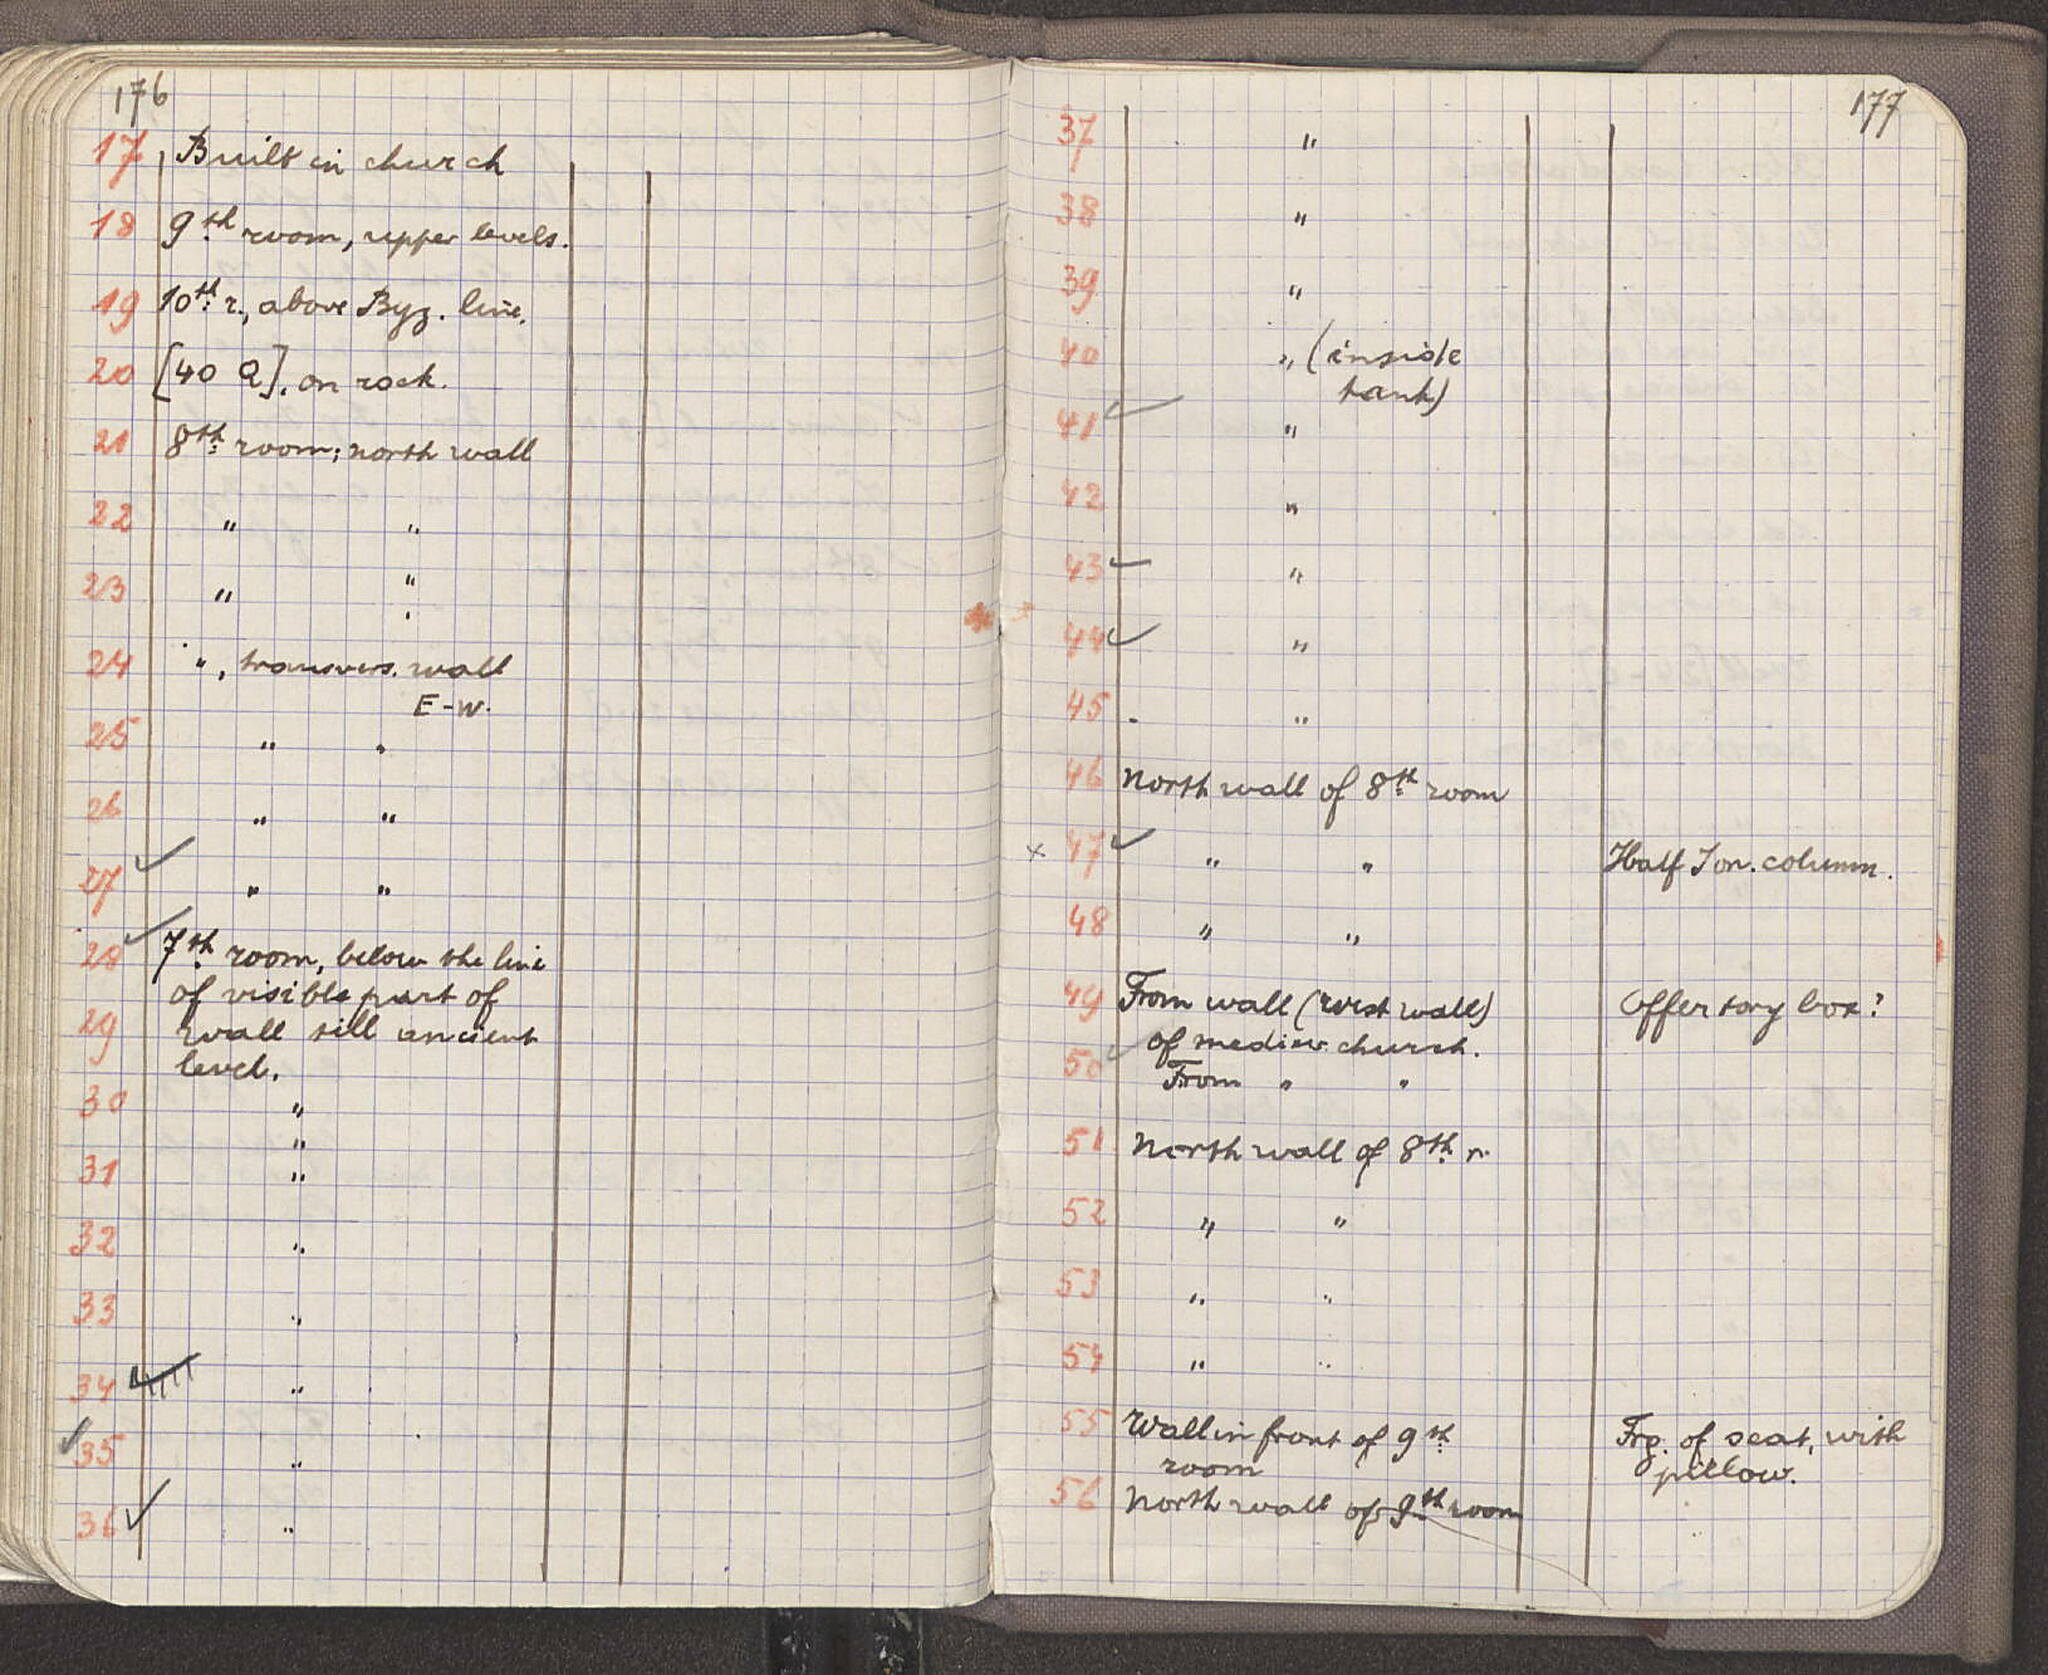 176
17 Built in church
18 9th room, upper levels.
19 10th r., above Byz. line.
20 [40 Q]. on rock.
21 8th room; north wall
22 " "
23 " "
24 ", transvers. wall
E-W.
25 " "
26 " "
27 ✓ " "
28 ✓ 7th room, below the line
of visible part of
29 wall till ancient
level.
30 "
"
31 "
32 "
33 "
34 ✓ "
✓ 35 "
36 ✓ "
177
37 "
38 "
39 "
40 " (inside
tank)
41 ✓ "
42 "
43 ✓ "
44 ✓ "
45 "
46 North wall of 8th room
x 47 ✓ " " Half Ion. column.
48 " "
49 From wall (west wall) Offertory box?
of mediev. church.
50 ✓ From " "
51 North wall of 8th r.
52 " "
53 " "
54 " "
55 Wall in front of 9th Frg. of seat, with
room pillow.
56 North wall of 9th room